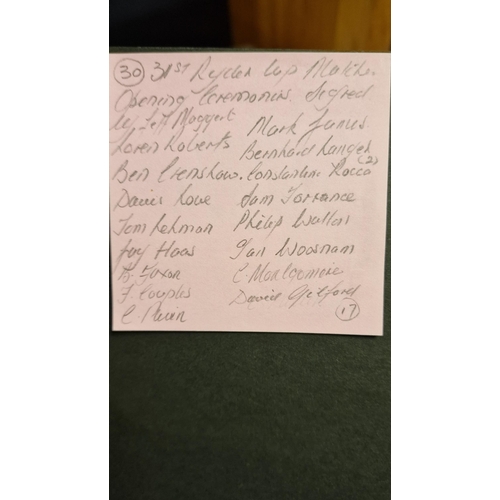 (30) 31ST Ryder Cup Matche.
Opening Ceremonies Signed
by Jeff Maggert
Mark James
Loren Roberts
Bernhard Langer
Ben Crenshaw. Constantino Rocca (2)
Davis Love Sam Torrance
Tom Lehman Philip Walton
Jay Haas Ian Woosnam
B. Faxon C. Montgomerie
F. Couples David Gilford
C. Pavin (17)